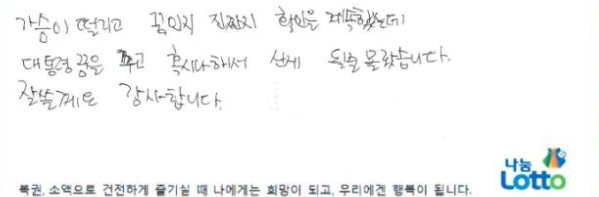 가슴이 떨리고 꿈인지 진짠지 확인을 계속했는데
대통령꿈을 꾸고 혹시나해서 산게 될줄 몰랐습니다.
잘쓸께요 감사합니다.
나눔
Lotto
복권, 소액으로 건전하게 즐기실 때 나에게는 희망이 되고, 우리에겐 행복이 됩니다.